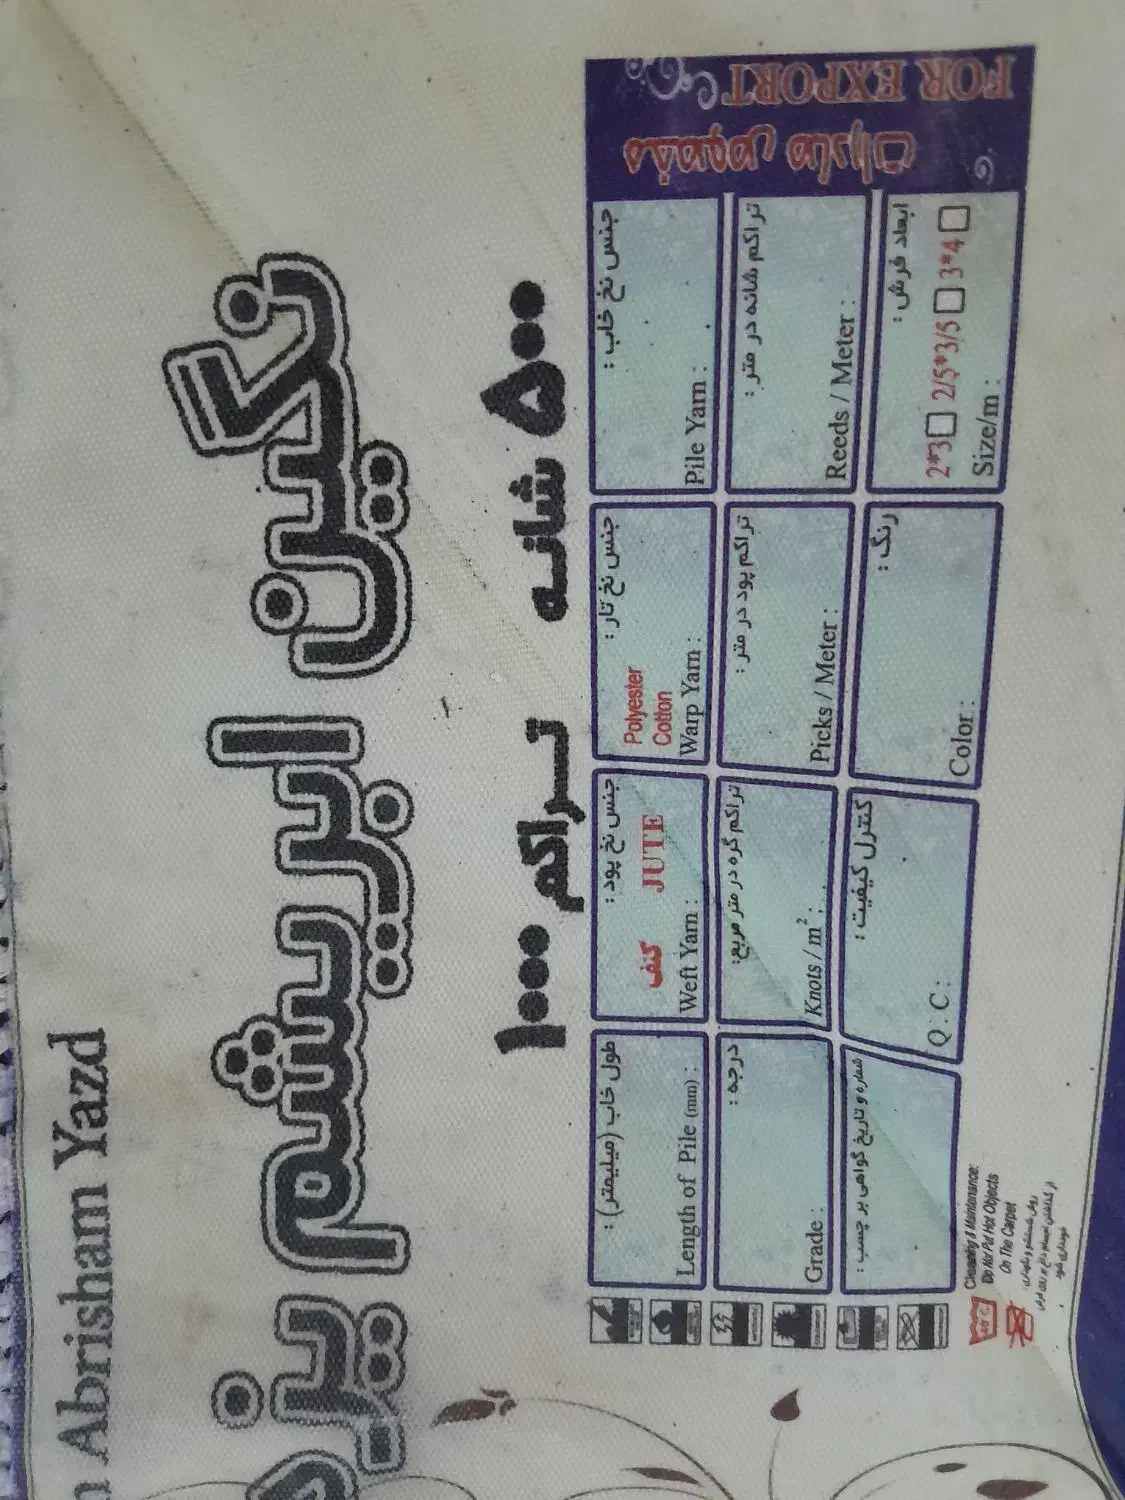 Abrisham Yazd
نگین ابریشم یزد
۵۰۰ شانه تراکم ۱۰۰۰
FOR EXPORT
مخصوص صادرات
جنس نخ خاب :
Pile Yarn :
جنس نخ تار :
Polyester
Cotton
Warp Yarn :
جنس نخ پود :
کنف JUTE
Weft Yarn :
طول خاب (میلیمتر) :
Length of Pile (mm) :
تراکم شانه در متر :
Reeds / Meter :
تراکم پود در متر :
Picks / Meter :
تراکم گره در متر مربع:
Knots / m² :
درجه :
Grade :
ابعاد فرش :
2*3 2/5*3/5 3*4
Size/m :
رنگ :
Color :
کنترل کیفیت :
Q : C :
شماره و تاریخ گواهی بر چسب :
Cleaning & Maintenance:
Do Not Put Hot Objects
On The Carpet
روش شستشو و نگهداری:
از گذاشتن اجسام داغ بر روی فرش
خودداری شود